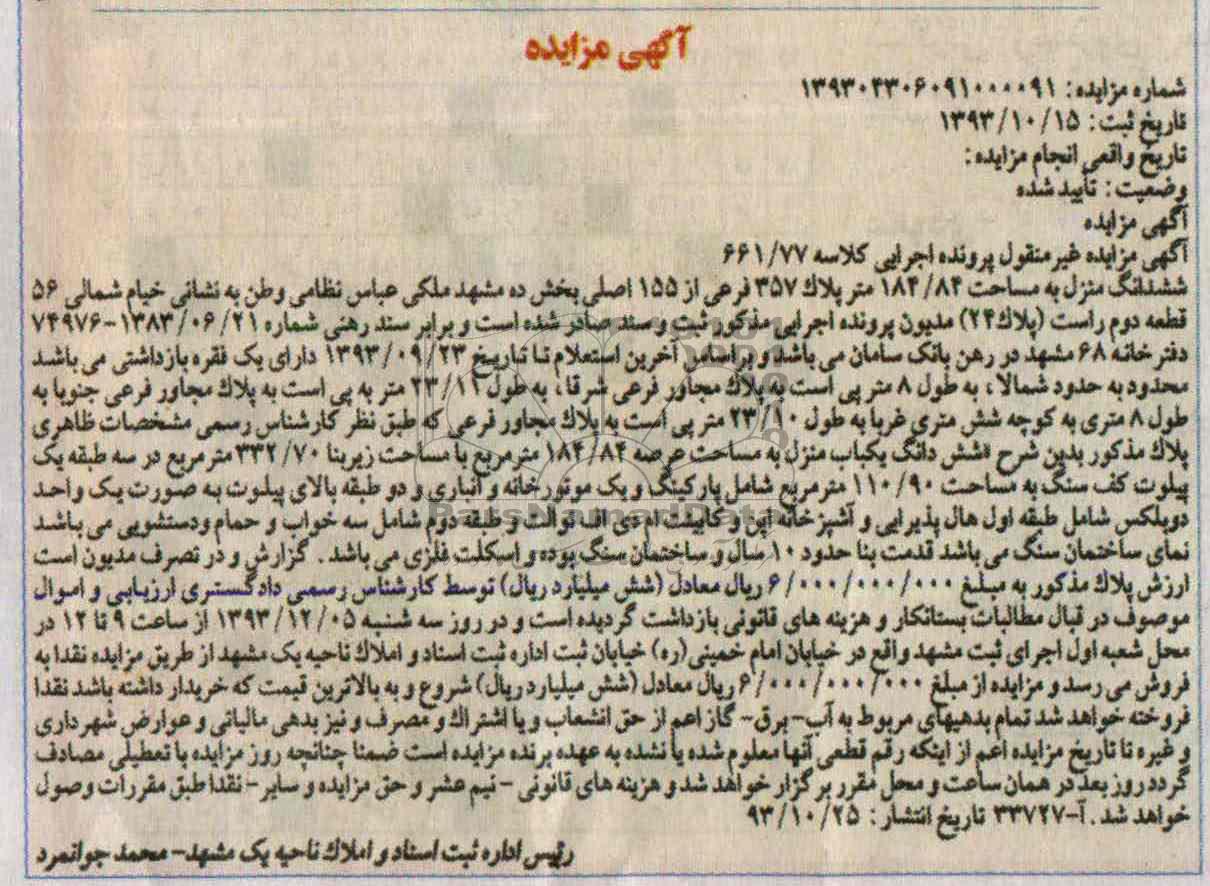 آگهی مزایده
شماره مزایده: ۱۳۹۳۰۴۳۰۶۰۹۱۰۰۰۰۹۱
تاریخ ثبت: ۱۳۹۳/۱۰/۱۵
تاریخ واقعی انجام مزایده:
وضعیت: تأیید شده
آگهی مزایده
آگهی مزایده غیرمنقول پرونده اجرایی کلاسه ۶۶۱/۷۷
ششدانگ منزل به مساحت ۱۸۴/۸۴ متر پلاک ۳۵۷ فرعی از ۱۵۵ اصلی بخش ده مشهد ملکی عباس نظامی وطن به نشانی خیام شمالی ۵۶
قطعه دوم راست (پلاک۲۴) مدیون پرونده اجرایی مذکور ثبت و سند صادر شده است و برابر سند رهنی شماره ۱۳۸۳/۰۶/۲۱-۷۴۹۷۶
دفترخانه ۶۸ مشهد در رهن بانک سامان می باشد و براساس آخرین استعلام تا تاریخ ۱۳۹۳/۰۹/۲۳ دارای یک فقره بازداشتی می باشد
محدود به حدود شمالا، به طول ۸ متر پی است به پلاک مجاور فرعی شرقا، به طول ۲۳/۱۱ متر به پی است به پلاک مجاور فرعی جنوبا به
طول ۸ متری به کوچه شش متری غربا به طول ۲۳/۱۰ متر پی است به پلاک مجاور فرعی که طبق نظر کارشناس رسمی مشخصات ظاهری
پلاک مذکور بدین شرح «شش دانگ یکباب منزل به مساحت عرصه ۱۸۴/۸۴ مترمربع با مساحت زیربنا ۳۳۲/۷۰ مترمربع در سه طبقه یک
پیلوت کف سنگ به مساحت ۱۱۰/۹۰ مترمربع شامل پارکینگ و یک موتورخانه و انباری و دو طبقه بالای پیلوت به صورت یک واحد
دوبلکس شامل طبقه اول هال پذیرایی و آشپزخانه اپن و کابینت ام دی اف توالت و طبقه دوم شامل سه خواب و حمام ودستشویی می باشد
نمای ساختمان سنگ می باشد قدمت بنا حدود ۱۰ سال و ساختمان سنگ بوده و اسکلت فلزی می باشد. گزارش و در تصرف مدیون است
ارزش پلاک مذکور به مبلغ ۶/۰۰۰/۰۰۰/۰۰۰ ریال معادل (شش میلیارد ریال) توسط کارشناس رسمی دادگستری ارزیابی و اموال
موصوف در قبال مطالبات بستانکار و هزینه های قانونی بازداشت گردیده است و در روز سه شنبه ۱۳۹۳/۱۲/۰۵ از ساعت ۹ تا ۱۲ در
محل شعبه اول اجرای ثبت مشهد واقع در خیابان امام خمینی(ره) خیابان ثبت اداره ثبت اسناد و املاک ناحیه یک مشهد از طریق مزایده نقدا به
فروش می رسد و مزایده از مبلغ ۶/۰۰۰/۰۰۰/۰۰۰ ریال معادل (شش میلیارد ریال) شروع و به بالاترین قیمت که خریدار داشته باشد نقدا
فروخته خواهد شد تمام بدهیهای مربوط به آب- برق- گاز اعم از حق انشعاب و یا اشتراک و مصرف و نیز بدهی مالیاتی و عوارض شهرداری
و غیره تا تاریخ مزایده اعم از اینکه رقم قطعی آنها معلوم شده یا نشده به عهده برنده مزایده است ضمنا چنانچه روز مزایده با تعطیلی مصادف
گردد روز بعد در همان ساعت و محل مقرر برگزار خواهد شد و هزینه های قانونی - نیم عشر و حق مزایده و سایر- نقدا طبق مقررات وصول
خواهد شد. آ-۳۳۷۲۷ تاریخ انتشار: ۹۳/۱۰/۲۵
رئیس اداره ثبت اسناد و املاک ناحیه یک مشهد- محمد جوانمرد
ParsNamadData